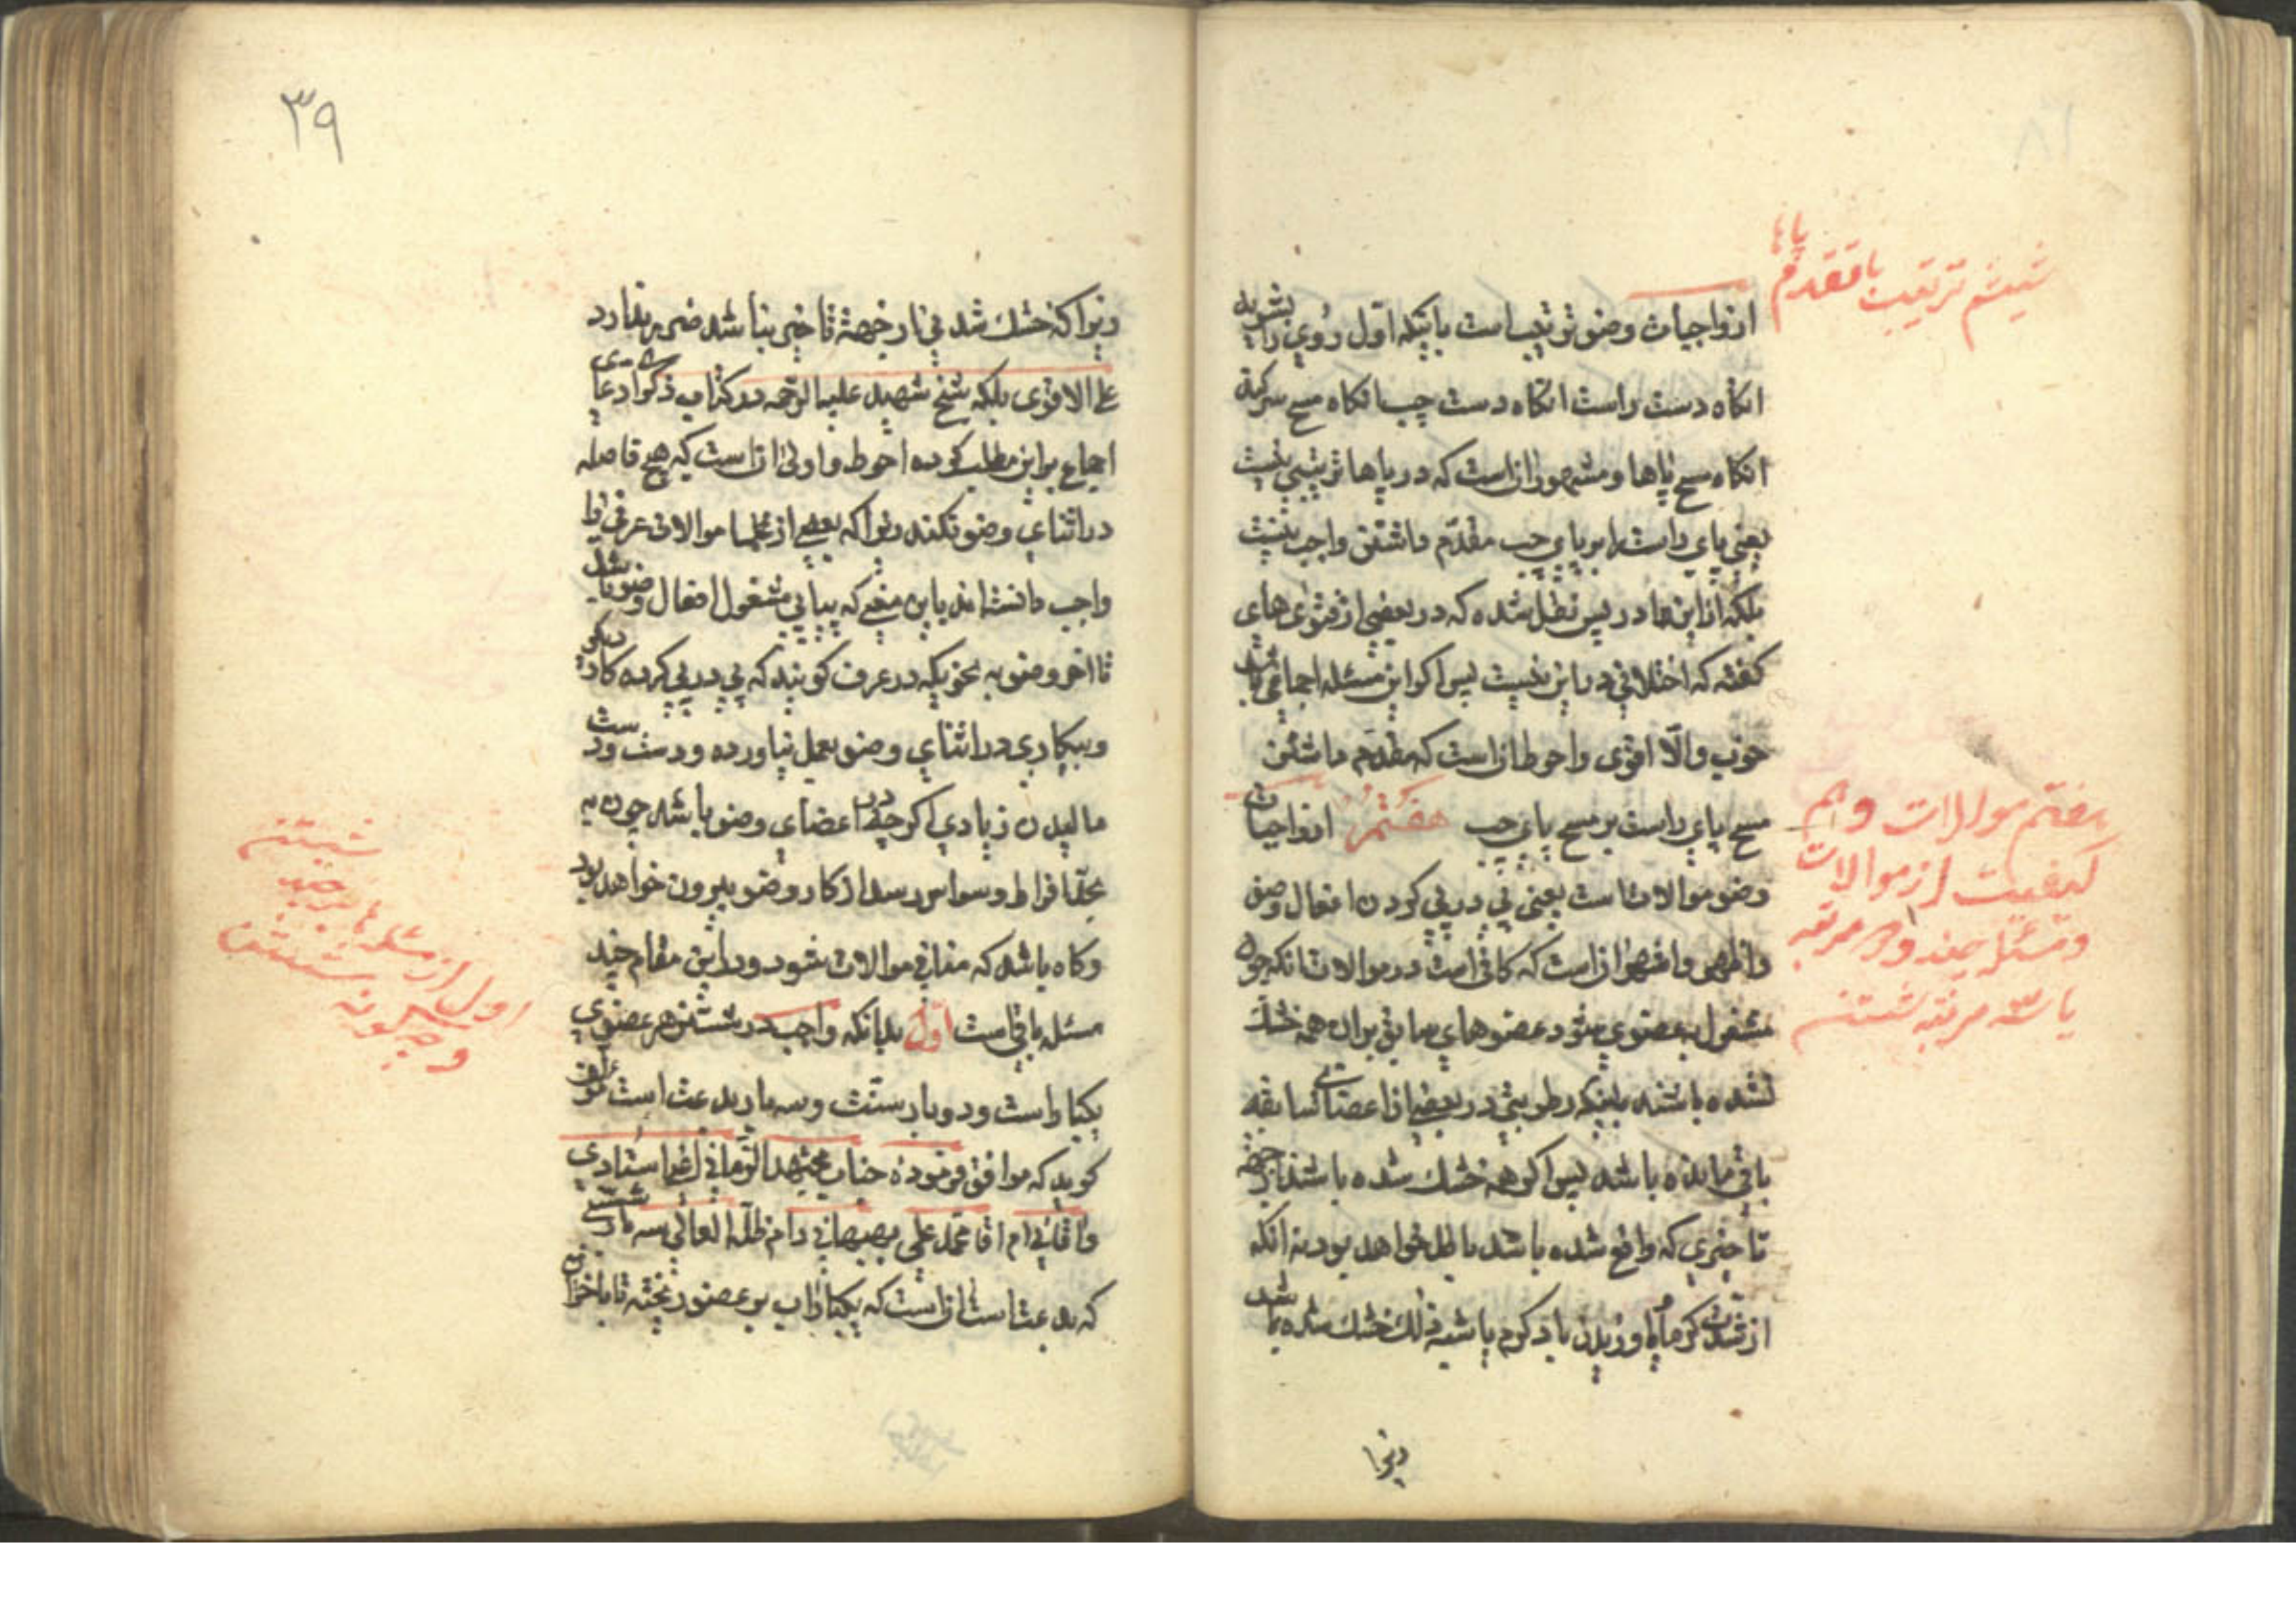 ششم ترتیب با مقدم پاها
از واجبات وضو ترتیب است باینکه اول روی را بشوید
انکاه دست راست انکاه دست چپ انکاه مسح سر کند
انکاه مسح پاها و مشهور انست که در پاها ترتیبی نیست
یعنی پای راست را بر پای چپ مقدّم داشتن واجب نیست
بلکه از ابن عا دریس نقل شده که در بعضی از فتوی های
کفته که اختلافی در این نیست پس اکر این مسئله اجماعی باشد
خوب والّا اقوی و احوط انست که مقدّم داشتن
مسح پای راست بر مسح پای چپ هفتم از واجبات
وضو موالات است یعنی پی در پی کردن افعال وضو
و اظهر و اشهر انست که کافی است در موالات انکه چون
مشغول به عضوی شود عضوهای سابق بران همه خشک
نشده باشند بلینکه رطوبتی در بعضی از اعضای سابقه
باقی مانده باشد پس اکر همه خشک شده باشند از جهة
تاخیری که واقع شده باشد باطل خواهد بود نه انکه
از شدّت کرما و یا وزیدن باد کرم یا شبه ذلک خشک شده باشد
زیرا
هفتم موالات وهم
کیفیت از موالات
و مسئله چند و مرتبه
یا سه مرتبه شستن
۳۹
زیرا که خشک شدنی نه از جهة تاخیر بناشد ضرر ندارد
علی الاقوی بلکه شیخ شهید علیه الرحمه در کتاب ذکری ادعای
اجماع بر این مطلب کرده احوط و اولی انست که هیچ فاصله
در اثنای وضو نکند زیرا که بعضی از علما موالات عرفی را
واجب دانسته اند باین معنی که پیاپی مشغول افعال وضو باشد
تا اخر وضو به نحویکه در عرف کویند که پی در پی کرده کار دیکر
و بیکاری در اثنای وضو بعمل نیاورده و دست و دست
مالیدن زیادی اکر چه در اعضای وضو باشد چون به
بحدّ افراط و سواس رسد از کار وضو بیرون خواهد بود
و کاه باشد که منافی موالات شود و در این مقام چند
مسئله باقی است اوّل بدانکه واجب در شستن هر عضوی
یکبار است و دو بار سنّت و سه بار بدعت است مؤلف
کوید که موافق فرموده جناب مجتهد الزمانی اعنی استادی
و اقائی ام اقا محمد علی بهبهانی دام ظله العالی سه بار شستن
که بدعت است انست که یکبار اب بر عضو ریخته تا باخر
شستن
اول از مسئله ها بر چند
و چکونه شستن